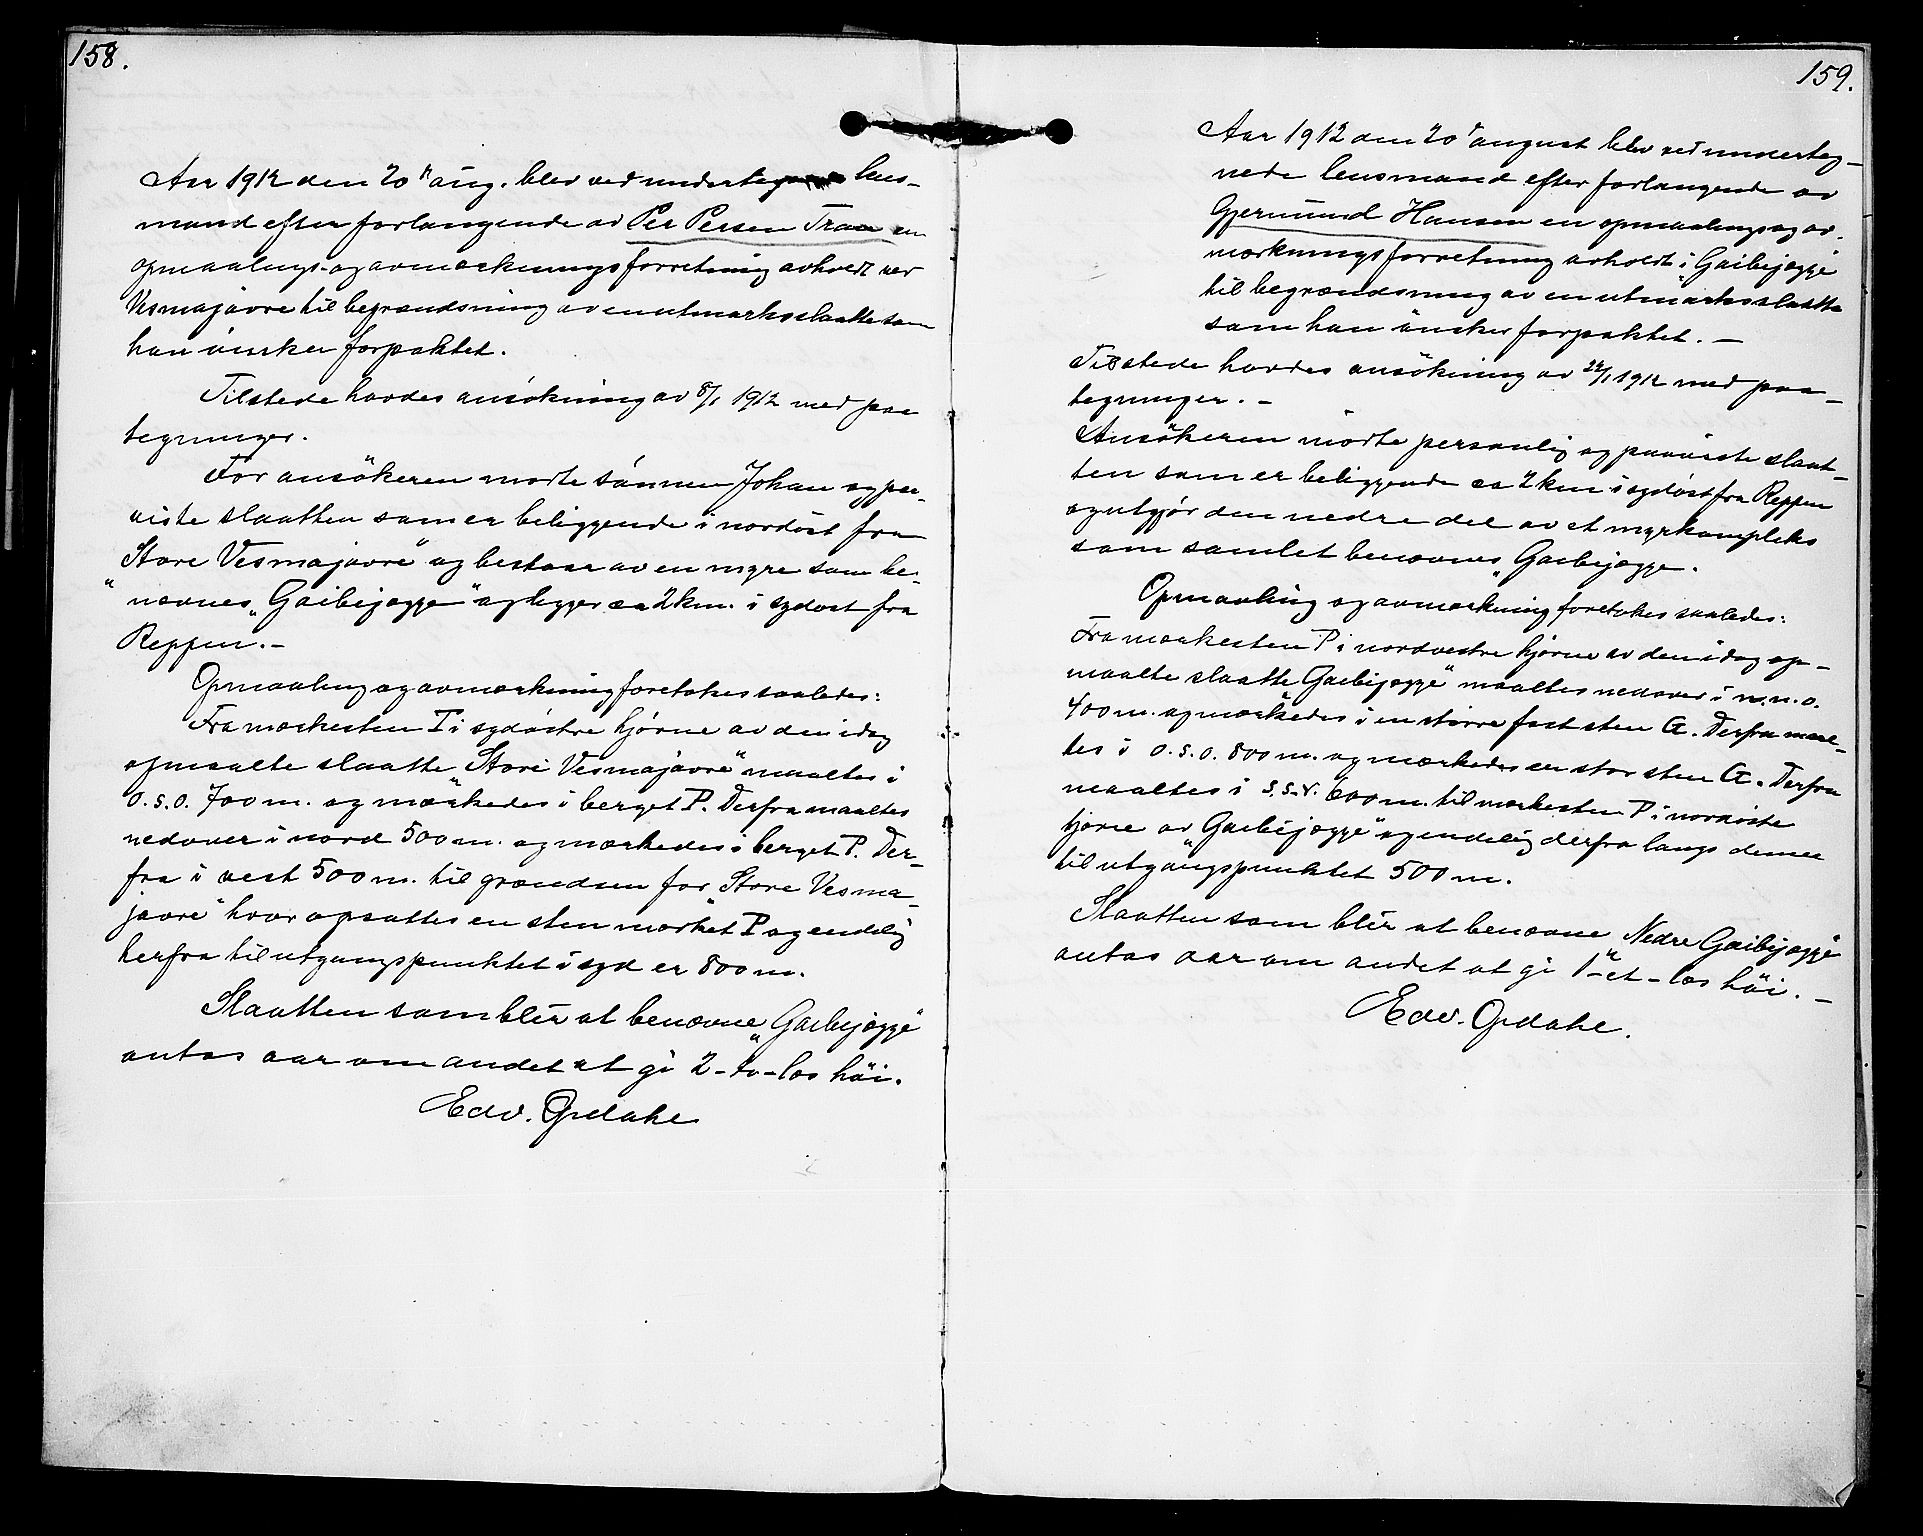 158.
Aar 1912 den 20de aug. blev ved undertegnede lens-
mand efter forlangende av Per Persen Traa en
opmaalings- og avmærkningsforretning avholdt ved
Vesmajavre til begrændsning av en utmarksslaatte som
han ønsker forpaktet.
Tilstede havdes ansökning av 8/1 1912 med paa
tegninger.
For ansökeren mødte sönnen Johan og paa-
viste slaatten som er beliggende i nordöst fra
"Store Vesmajavre" og bestaar av en myre som be-
nævnes "Gaibejægge" og ligger ca 2 km. i sydöst fra
Reppen.-
Opmaaling og avmærkning foretokes saaledes:
Fra mærkesten P i sydöstre hjörne av den idag
opmaalte slaatte "Store Vesmajavre" maaltes i
o.s.o. 700 m. og mærkedes i berget P. Derfra maaltes
nedover i nord 500 m. og mærkedes i berget P. Der-
fra i vest 500 m. til grændsen for "Store Vesma-
javre" hvor opsattes en sten mærket P og endelig
herfra til utgangspunktet i syd er 800 m.
Slaatten som blir at benævne "Gaibejægge"
antas aar om andet at gi 2-to-læs höi.
Edv. Opdahl
159.
Aar 1912 den 20de august blev ved underteg-
nede lensmand efter forlangende av
Gjermund Hansen en opmaalings og av-
mærkningsforretning avholdt i "Gaibejægge"
til begrændsning av en utmarksslaatte
som han önsker forpaktet. -
Tilstede havdes ansökning av 22/1 1912 med paa-
tegninger. -
Ansökeren mödte personlig og paaviste slaat-
ten som er beliggende ca 2 km i sydöst fra Reppen
og utgjör den nedre del av et myrkompleks
som samlet benævnes "Gaibejægge.
Opmaaling og avmærkning foretokes saaledes:
Fra mærkesten P i nordvestre hjörne av den idag op-
maalte slaatte "Gaibejægge" maaltes nedover i n.n.o.
400 m. og mærkedes i en större fast sten G. Derfra maal-
tes i o.s.o. 800 m. og mærkedes en stor sten G. Derfra
maaltes i s.s.v. 600 m. til mærkesten P i nordöste
hjörne av "Gaibejægge" og endelig derfra langs denne
til utgangspunktet 500 m.
Slaatten som blir at benævne "Nedre Gaibejægge"
antas aar om andet at gi 1-et-læs höi. -
Edv. Opdahl.